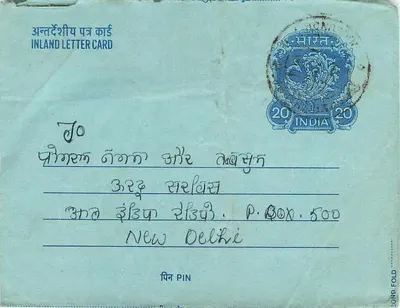 अन्तर्देशीय पत्र कार्ड
INLAND LETTER CARD
भारत
20 20
INDIA
To
और
ऊरदु सरविस
आल इंडिया रेडियो. P. BOX. 500
New Delhi
पिन PIN
FOLD